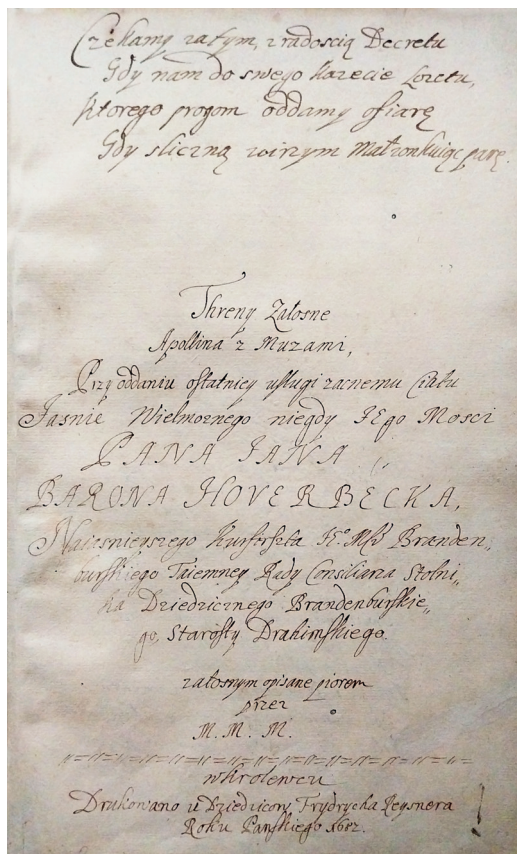 Czekamy zatym, z radoscią Decretu
Gdy nam do swego każecie Loretu,
Ktorego progom oddamy ofiarę
Gdy sliczną uirzym Małzonkuiąc parę.
Threny Załosne
Apollina z Muzami,
Przy oddaniu ostatniey usługi zacnemu Ciału
Jasnie Wielmoznego niegdy JEgo Mosci
PANA JANA
BARONA HOVERBECKA,
Naiasnieyszego Kurfirszta Mći Branden,,
burskiego Taiemney Rady Consiliarza Stolni,,
ka Dziedzicznego Brandenburskie,,
go, Starosty Drahimskiego.
załosnym opisane piorem
przez
M. M. M.
w Krolewcu
Drukowano u Dziedzicow Frydrycha Reysnera
Roku Panskiego 1682.